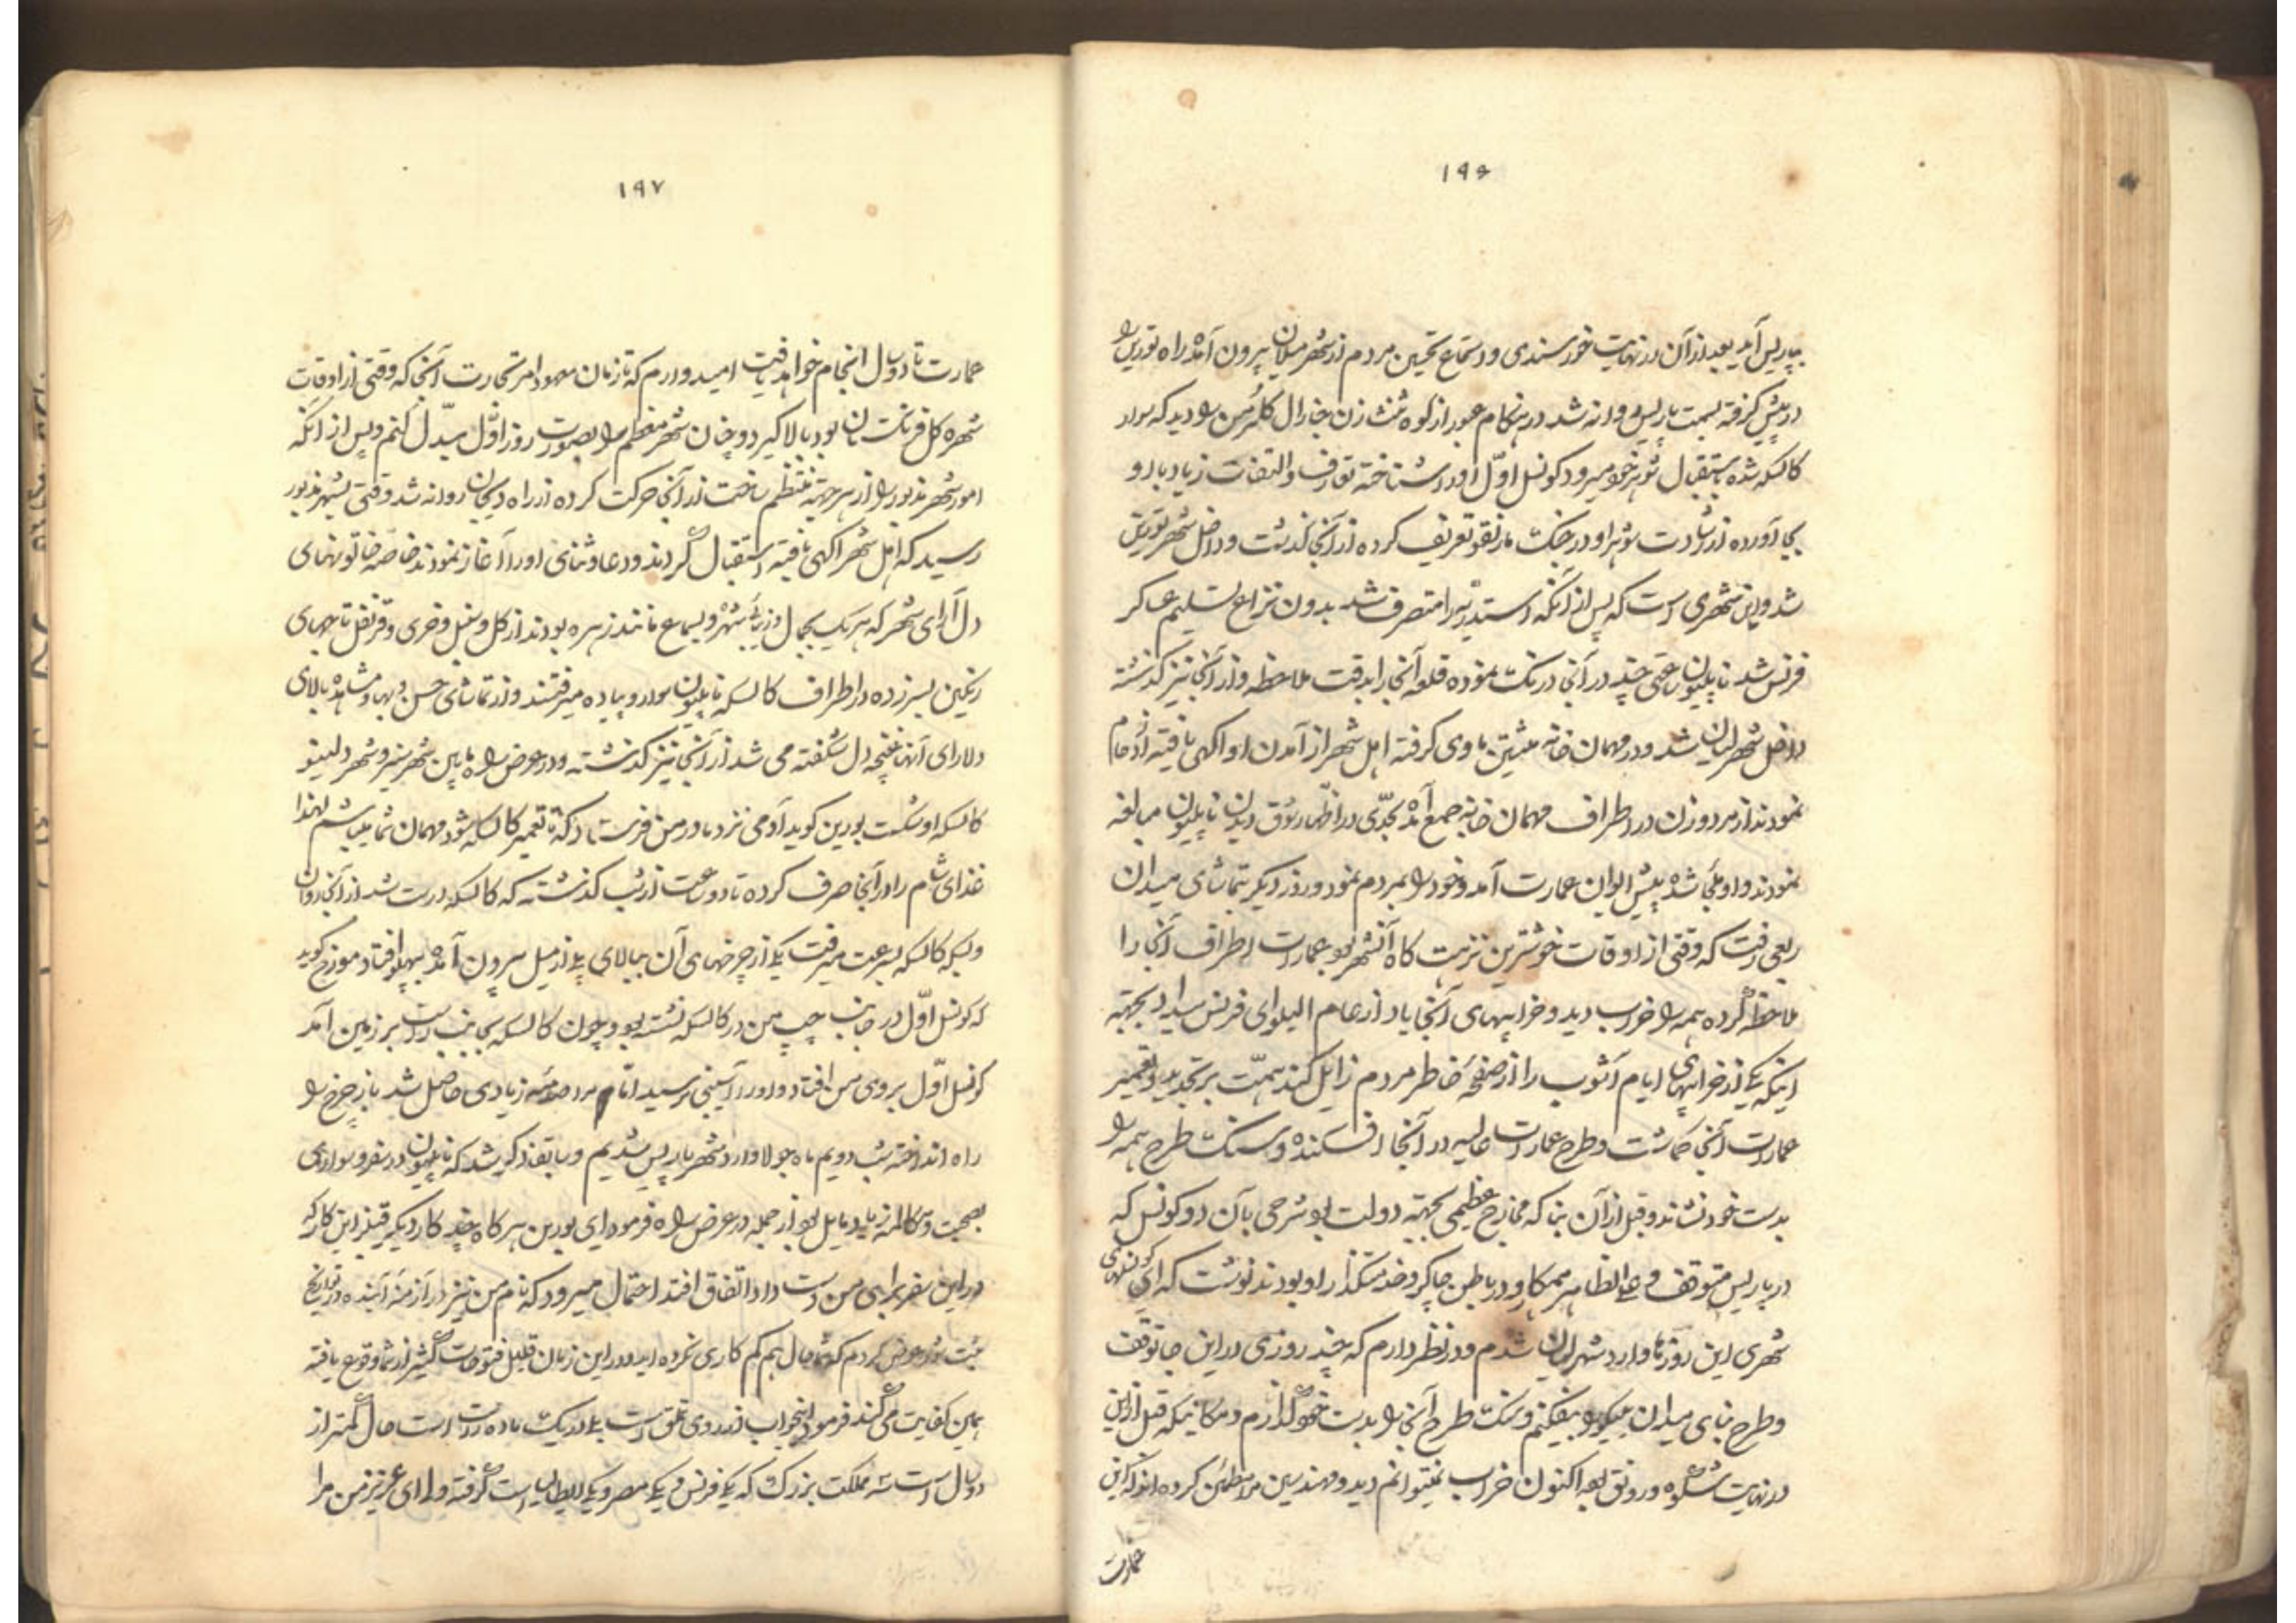 ۱۹۶
بپاریس آید بعد از آن در نهایت خورسندی و استماع تحسین مردم از شهر میلان بیرون آمده راه تورین را
در پیش گرفته بسمت پاریس روانه شد در هنگام عبور از کوه زن جنارال را دید که سوار
کالسکه شده باستقبال شوهر خود میرود کونسل اوّل او را شناخته تعارف و التفات زیاد با او
بجا آورده از رشادت شوهر او در جنک مارنقو تعریف کرده از آنجا کذشت و داخل شهر تورین
شد و این شهری است که پس از آنکه متصرف شد بدون نزاع تسلیم عساکر
فرنس شد ناپلیون ساعتی چند در آنجا درنک نموده قلعه آنجا را بدقت ملاحظه و از آنجا نیز کذشته
داخل شهر لیان شد و در مهمان خانه ماوی کرفته اهل شهر از آمدن او اکهی یافته ازدحام
نمودند از مرد و زن در اطراف مهمان خانه جمع آمده بحدّی در اظهار شوق دیدن ناپلیون مبالغه
نمودند و او ملجا شده پیش ایوان عمارت آمد و خود را بمردم نمود و روز دیکر بتماشای میدان
رفت که وقتی از اوقات خوشترین نزهت کاه آنشهر بود عمارات اطراف آنجا را
ملاحظه کرده همه را خراب دید و خرابیهای آنجا یاد از عام البلوای فرنس میداد بجهة
اینکه یکی از خرابیهای ایام آشوب را از صفحه خاطر مردم زایل کند همّت بر تجدید و تعمیر
عمارات آنجا کماشت و طرح عمارات عالیه در آنجا افکنده و سنک طرح همه را
بدست خود نشاند و قبل از آن بنا که مخارج عظیمی بجهة دولت بود شرحی بآن دو کونسل که
در پاریس متوقف و علی الظاهر همکار و در باطن چاکر و خدمتکذار او بودند نوشت که ای کونسلهای
شهری این روزها وارد شهر لیان شدم و در نظر دارم که چند روزی در این جا توقف
و طرح بنای میدان را بیفکنم و سنک طرح آنجا را بدست خود کذارم و مکانیکه قبل از این
در نهایت شکوه و رونق بود اکنون خراب نمیتوانم دید و مهندسین مرا مطمئن کرده اند که این
عمارت
۱۹۷
عمارت تا دو سال انجام خواهد یافت امیدوارم که تا زمان معهود امر تجارت آنجا که وقتی از اوقات
شهره کل فرنکستان بود بالا کیرد و چنان شهر معظم را بصورت روز اوّل مبدّل کنم و پس از آنکه
امور شهر مذبور را از هر جهة منتظم ساخت از آنجا حرکت کرده از راه دیجان روانه شد وقتی بشهر مذبور
رسید که اهل شهر اکهی یافته استقبال کردند و دعا و ثنای او را آغاز نمودند خاصه خاتونهای
دل آرای شهر که هر یک بجمال و زیبائی شهره و مانند زهره بودند از کل و سنبل و خیری و قرنفل تاجهای
رنکین بسر زده در اطراف کالسکه ناپلیون سوار و پیاده میرفتند و از تماشای حسن و بها و مشاهده بالای
دلارای آنها غنچه دل شکفته می شد از آنجا نیز کذشته و در عرض راه مابین شهر و شهر
کالسکه او شکست بورین کوید آدمی نزد مادر من فرستاد که تا تعمیر کالسکه شود مهمان شما میباشم لهذا
غذای شام را در آنجا صرف کرده تا دو ساعت از شب کذشته که کالسکه درست شد از آنجا روان
و بسکه کالسکه بسرعت میرفت یکی از چرخهای آن ببالای پلی از میل بیرون آمده به پهلو افتاد مورّخ کوید
که کونسل اوّل در جانب چپ من در کالسکه نشسته بود و چون کالسکه بجانب راست بر زمین آمد
کونسل اوّل بروی من افتاد و او را آسیبی نرسید امّا مرا صدمه زیادی حاصل شد باز چرخ را
راه انداخته شب دویم ماه جولا وارد شهر پاریس شدیم و سابقا ذکر شد که ناپلیون در سفر و سواری
بصحبت و مکالمه زیاد مایل بود از جمله در عرض راه فرمود ای بورین هر کاه چند کار دیکر قبیل این کار که
در این سفر برای من دست داد اتفاق افتد احتمال میرود که نام من نیز در ازمنه آینده در تواریخ
ثبت شود عرض کردم که شما حال هم کم کاری نکرده اید در این زمان قلیل فتوحات کثیر از شما وقوع یافته
همین کفایت می کند فرمود اینجواب از روی تملق است بلی در یک ماده راست است حال کمتر از
دو سال است سه مملکت بزرک که یکی فرنس و یکی مصر و یکی ایطالیا است کرفته ام ولی ای عزیز من مرا